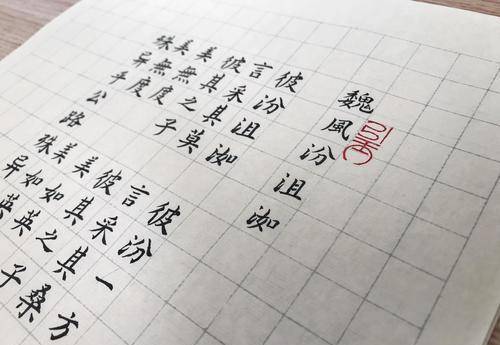 魏風汾沮洳
彼汾沮洳
言采其莫
彼其之子
美無度
美無度
殊异乎公路
彼汾一方
言采其桑
彼其之子
美如英
美如英
殊异